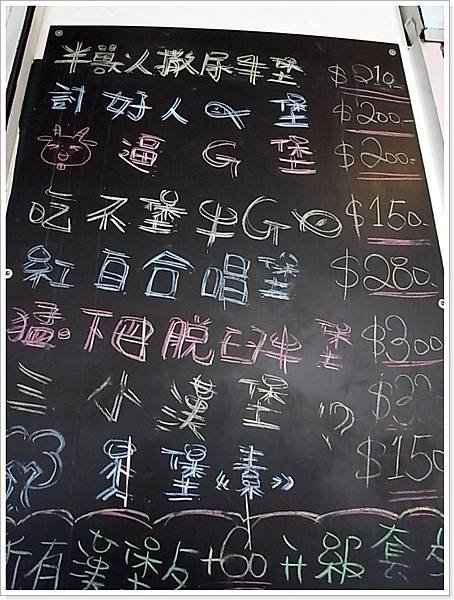 半獸人撒尿牛堡 $210.-
討好人 堡 $200.-
逼 G 堡 $200.-
吃不堡半G $150.
紅百合唱堡 $280.
猛。下巴脫臼牛堡 $300
三小漢堡
堡《素》 $150
所有漢堡 +60 升級套